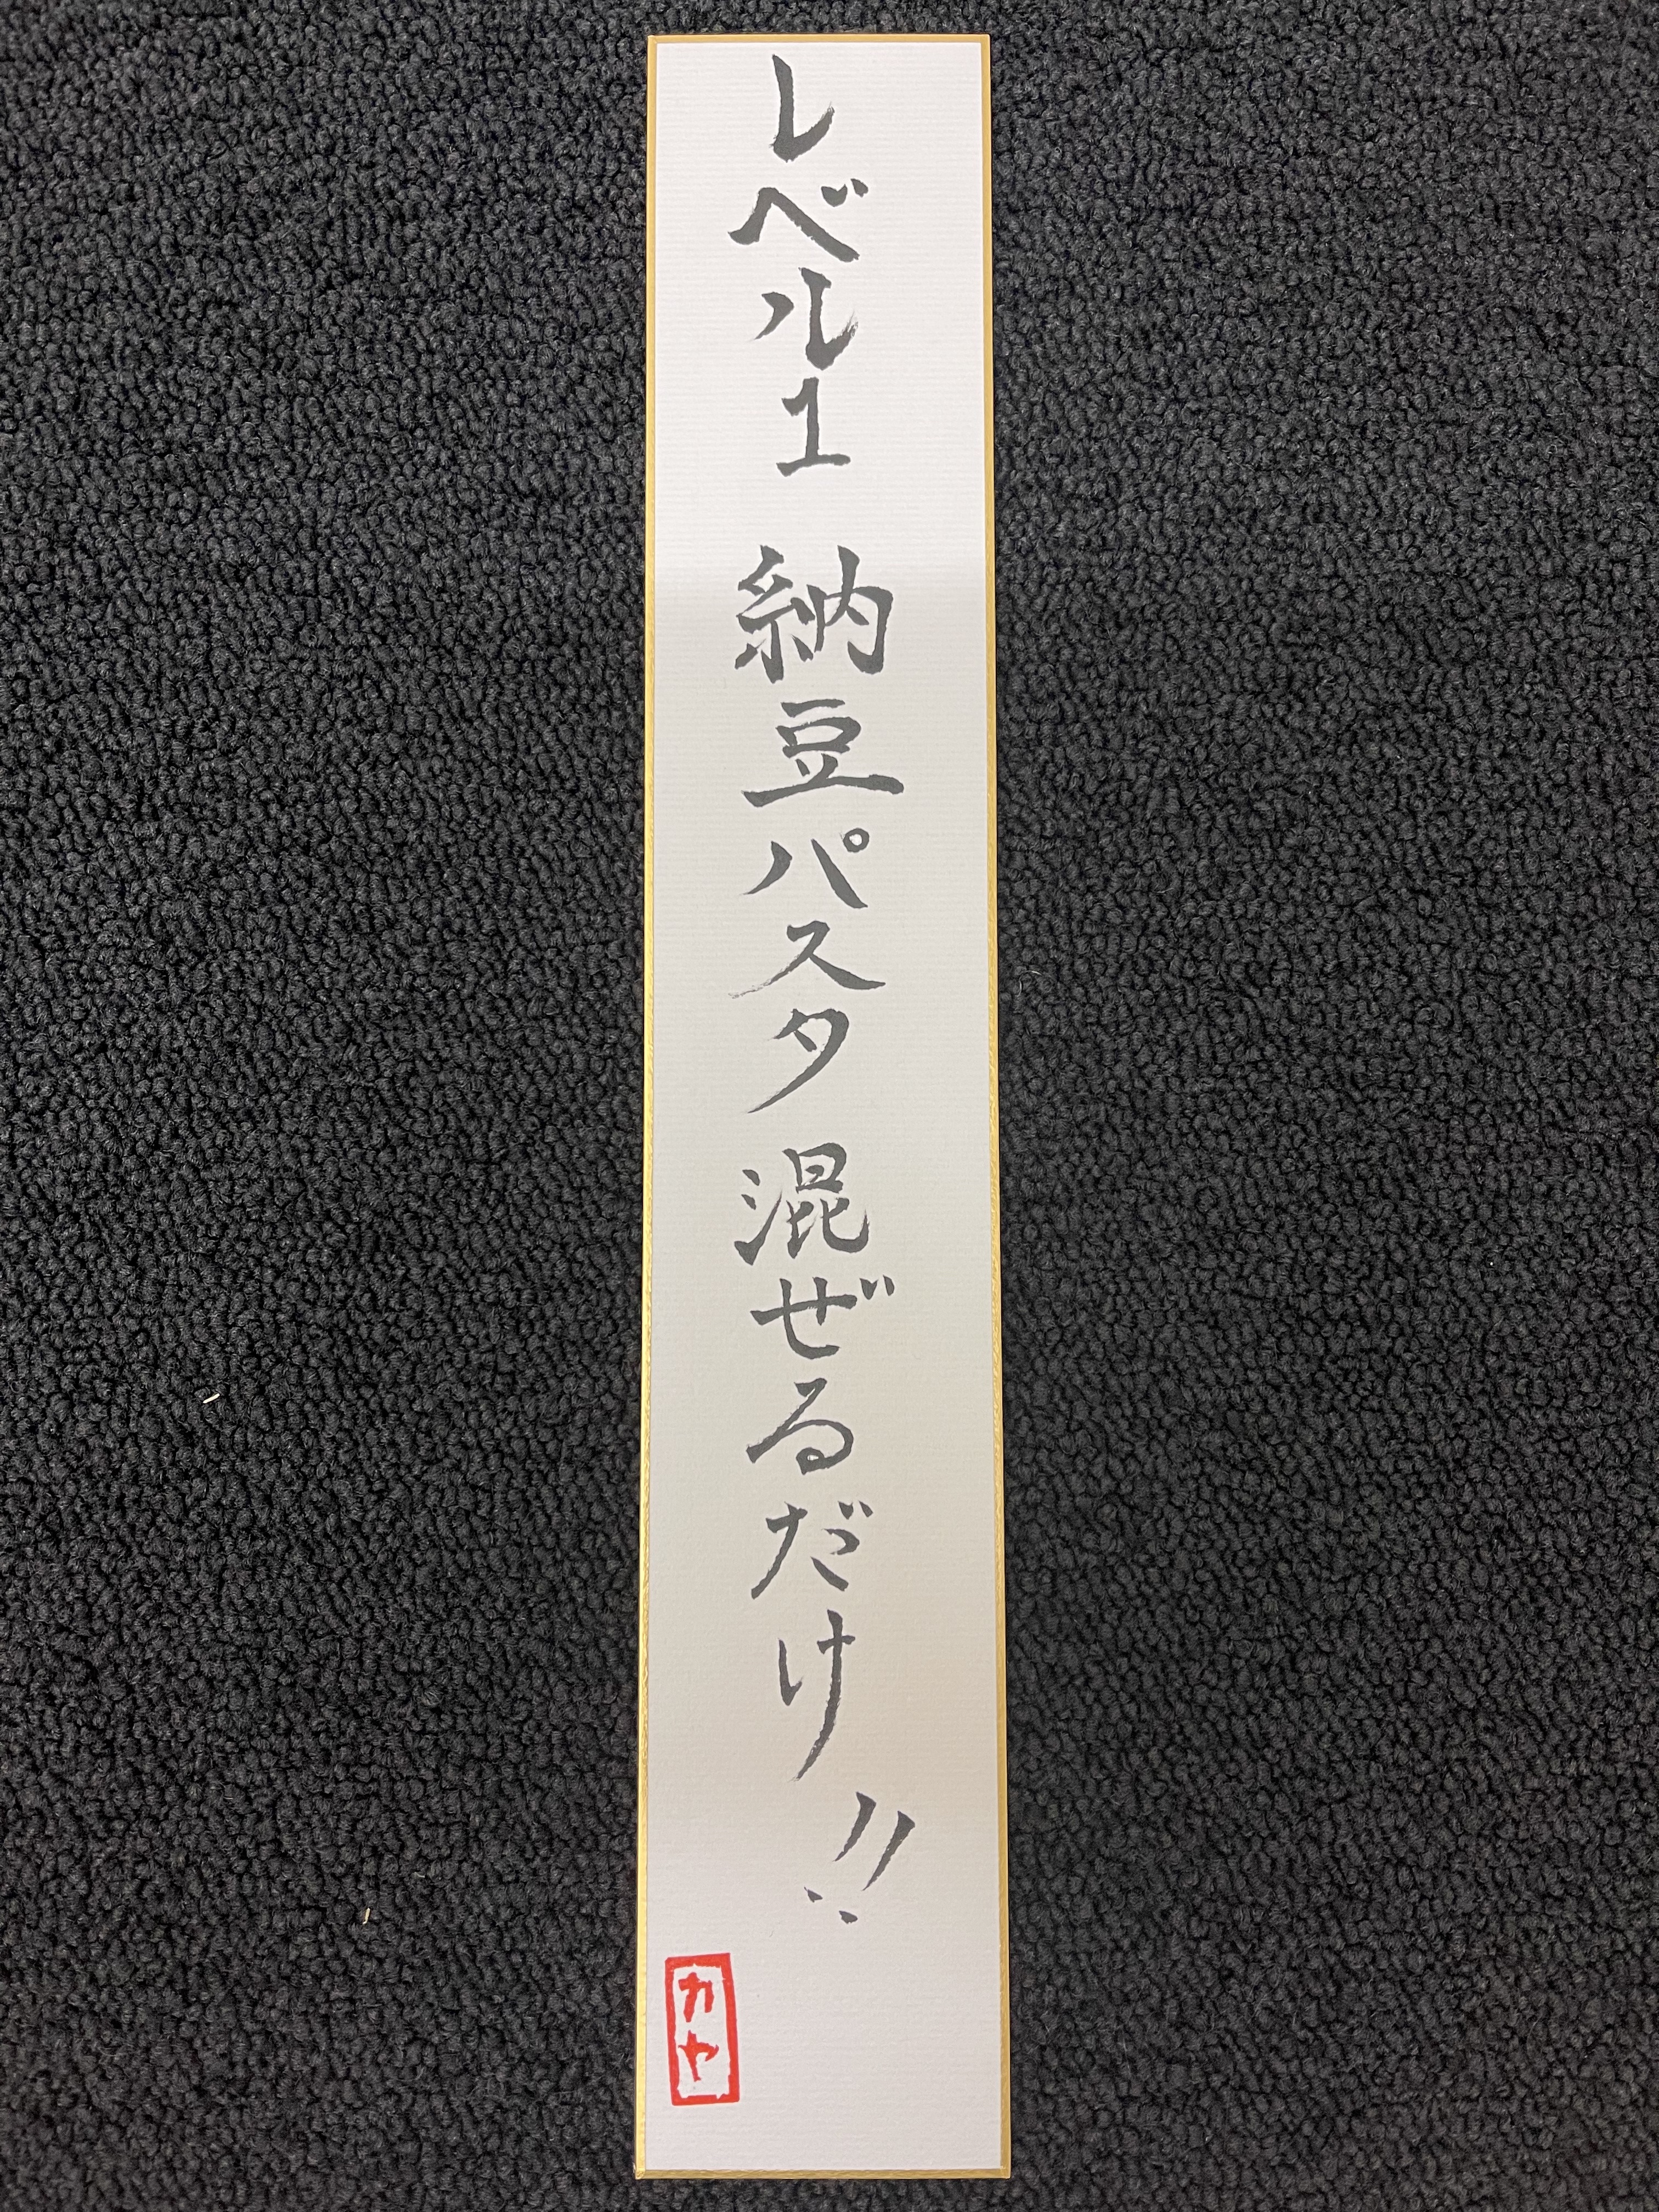 レベル1 納豆パスタ 混ぜるだけ!!
カヤ